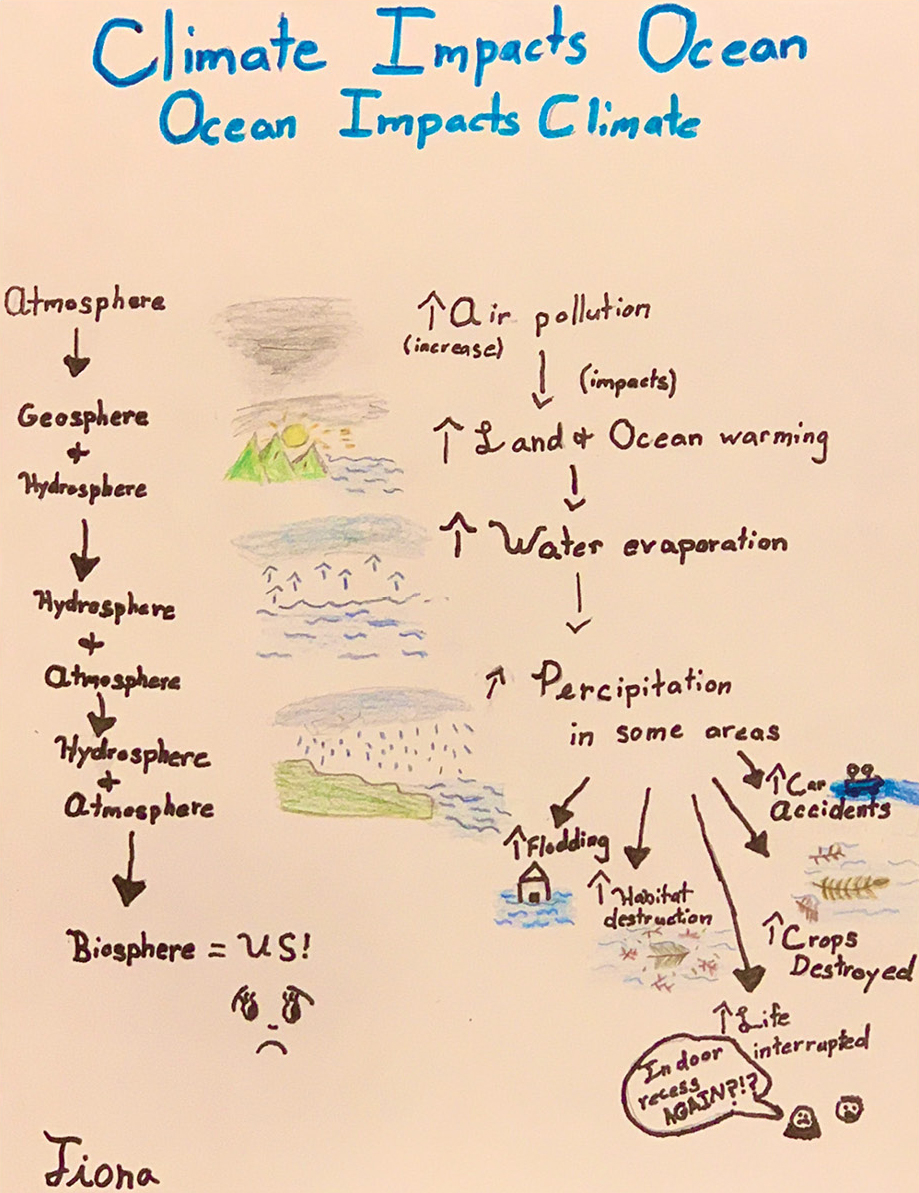 Climate Impacts Ocean
Ocean Impacts Climate
Atmosphere
Geosphere
+
Hydrosphere
Hydrosphere
+
Atmosphere
Hydrosphere
+
Atmosphere
Biosphere = US!
↑ Air pollution
(increase)
(impacts)
↑ Land + Ocean warming
↑ Water evaporation
↑ Percipitation
in some areas
↑ Flodding
↑ Habitat
destruction
↑ Car
accidents
↑ Crops
Destroyed
↑ Life
interrupted
Indoor
recess
AGAIN?!?
Fiona